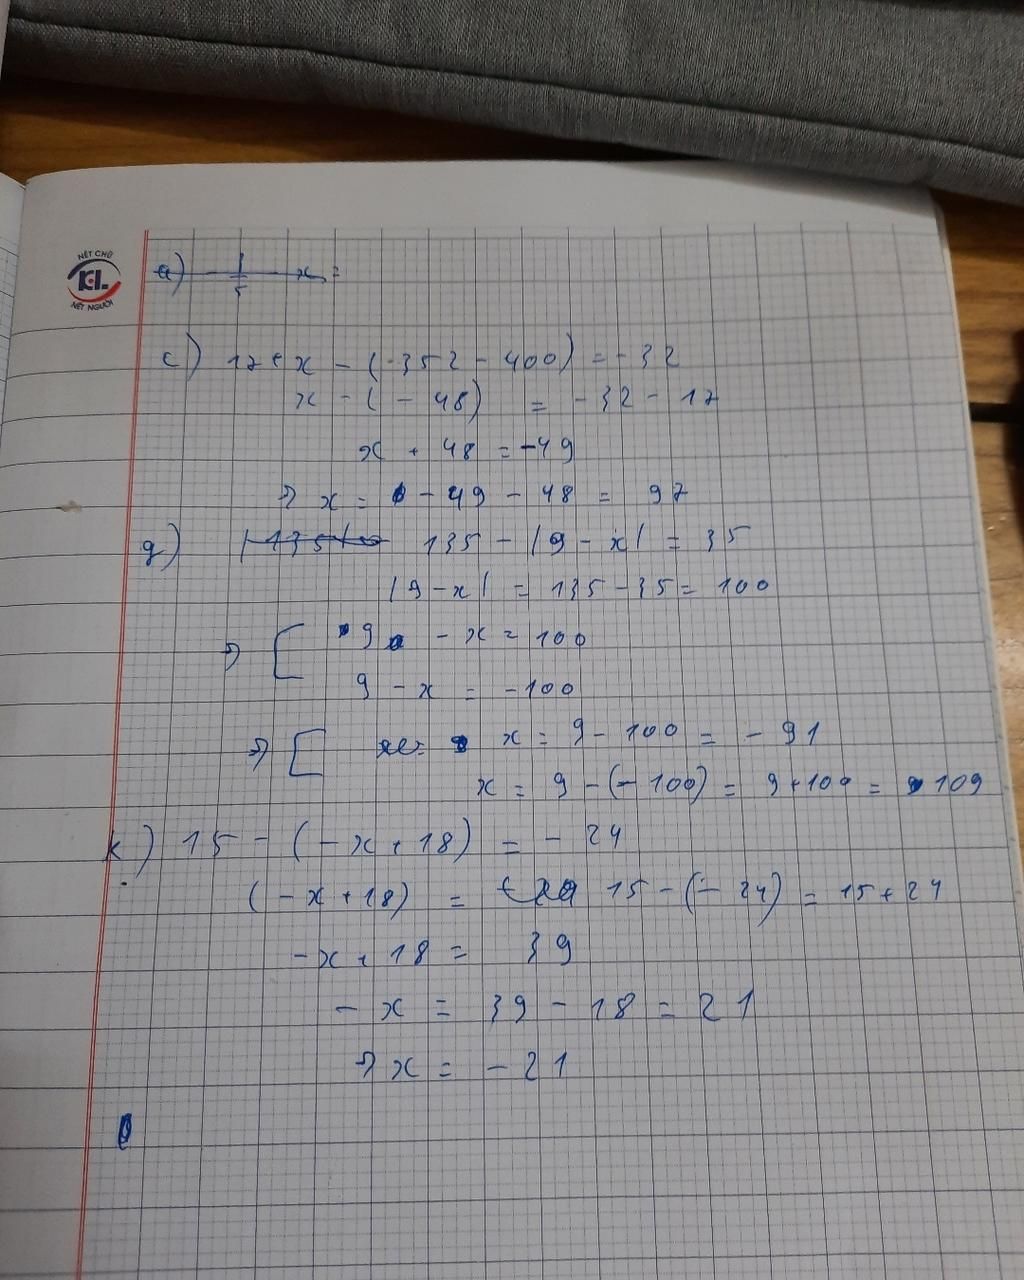 NÉT CHỮ
K·L
NẾT NGƯỜI
c) 17 + x - (352 - 400) = - 32
x - ( - 48) = - 32 - 17
x + 48 = -49
=> x = - 49 - 48 = 97
g) 135 - |9 - x| = 35
|9 - x| = 135 - 35 = 100
=> [ 9 - x = 100
9 - x = -100
=> [ x = 9 - 100 = - 91
x = 9 - (- 100) = 9 + 100 = 109
k) 15 - (- x + 18) = - 24
(- x + 18) = 15 - (- 24) = 15 + 24
- x + 18 = 39
- x = 39 - 18 = 21
=> x = - 21